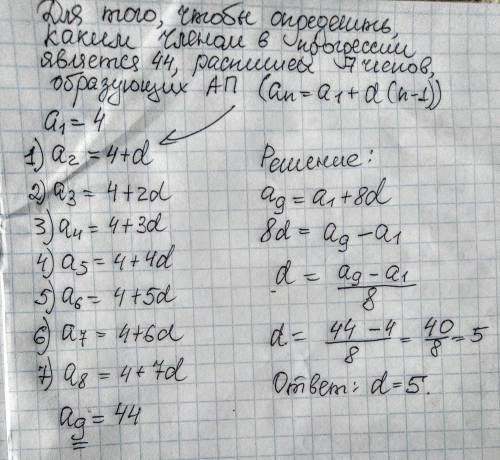 Для того, чтобы определить,
каким членом в прогрессии
является 44, распишем 7 членов,
образующих АП (an = a1 + d (n-1))
a1 = 4
1) a2 = 4+d
2) a3 = 4+2d
3) a4 = 4+3d
4) a5 = 4+4d
5) a6 = 4+5d
6) a7 = 4+6d
7) a8 = 4+7d
a9 = 44
Решение:
a9 = a1 + 8d
8d = a9 - a1
d = (a9 - a1)/8
d = (44 - 4)/8 = 40/8 = 5
Ответ: d = 5.